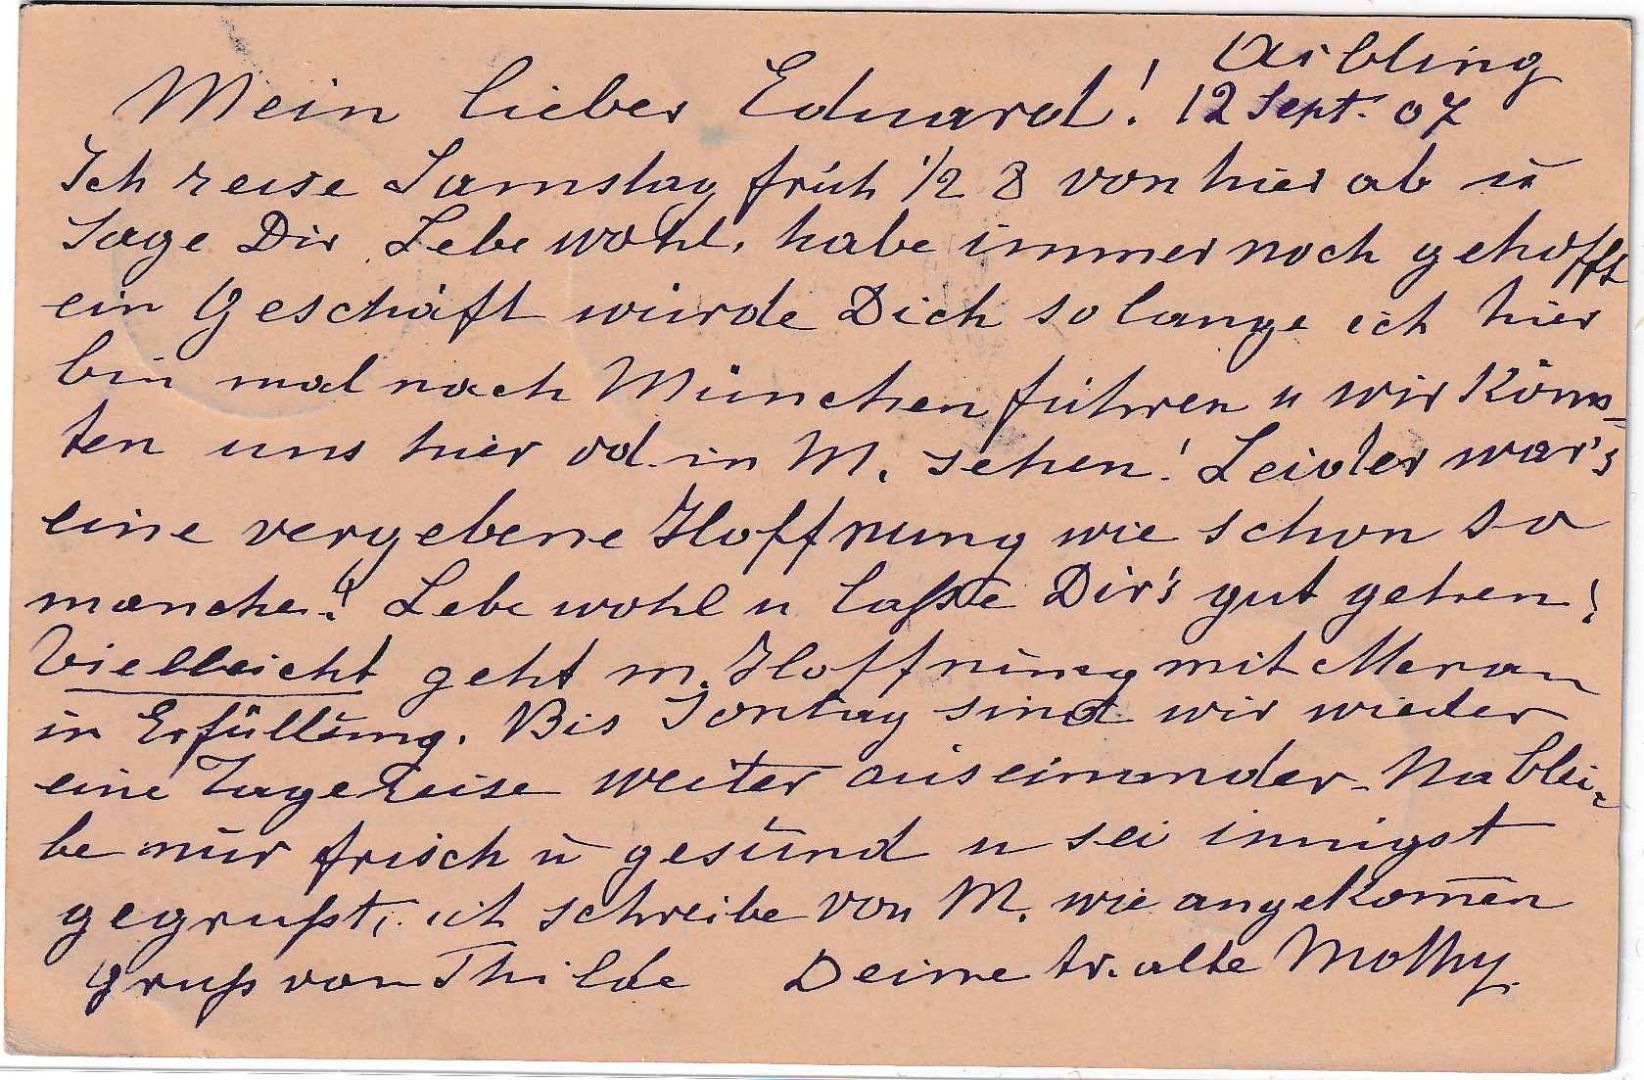 Aibling
Mein lieber Eduard! 12 Sept. 07
Ich reise Samstag früh 1/2 8 von hier ab u
sage Dir Lebe wohl, habe immer noch gehofft
ein Geschäft würde Dich so lange ich hier
bin mal nach München führen u wir könn-
ten uns hier od. in M. sehen! Leider war's
eine vergebene Hoffnung wie schon so
manche! Lebe wohl u laße Dir's gut gehen!
Vielleicht geht m. Hoffnung mit Meran
in Erfüllung. Bis Sontag sind wir wieder
eine Tagereise weiter auseinander. Na blei-
be nur frisch u gesund u sei innigst
gegrußt, ich schreibe von M. wie angekom̅en
Gruß von Thilde Deine tr. alte Mothy.